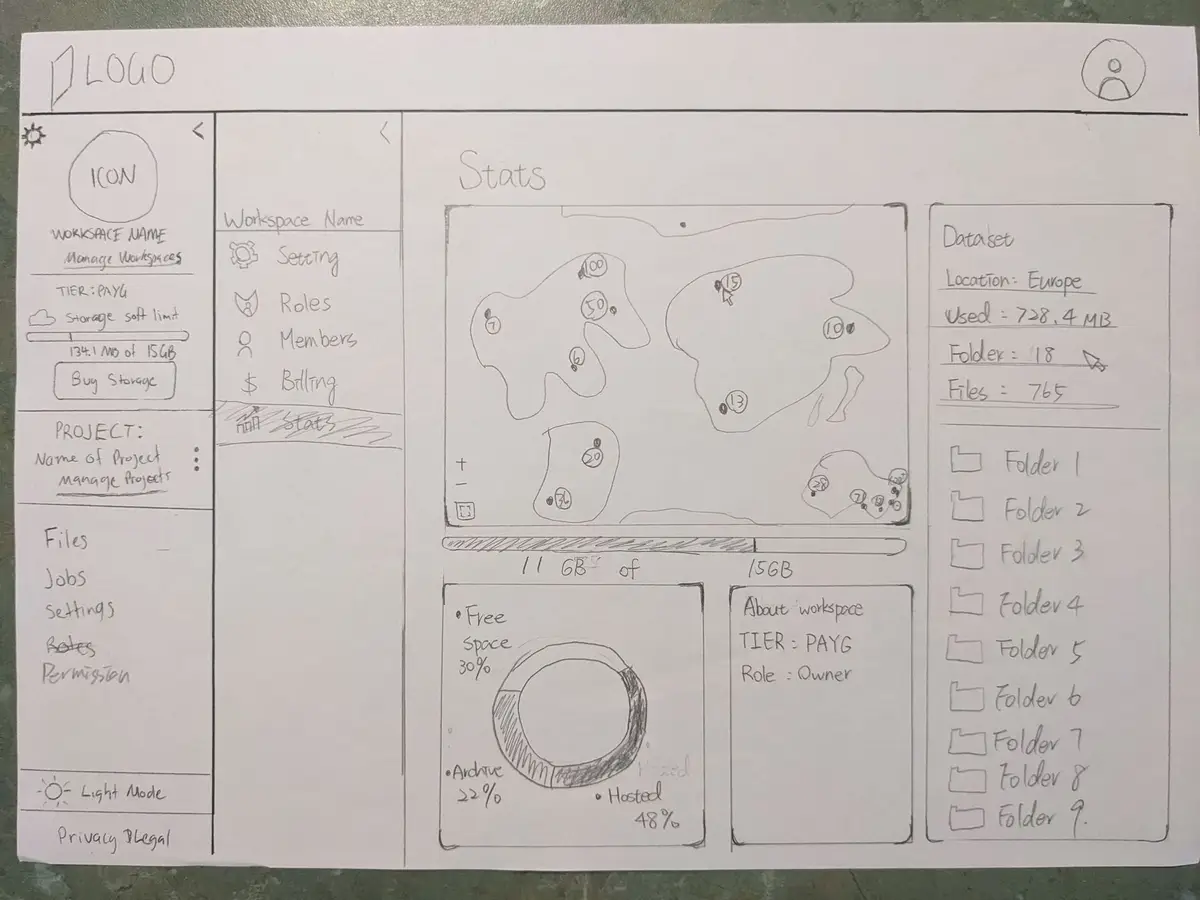 LOGO
ICON
WORKSPACE NAME
Manage Workspaces
TIER: PAYG
Storage soft limit
134.1 MB of 15GB
Buy Storage
PROJECT:
Name of Project
Manage Projects
Files
Jobs
Settings
Roles
Permission
Light Mode
Privacy & Legal
Workspace Name
Setting
Roles
Members
$ Billing
Stats
Stats
100
50
7
6
15
10
13
20
36
28
+
-
11 GB of 15GB
Free
Space
30%
Archive
22%
Hosted
48%
About workspace
TIER: PAYG
Role: Owner
Dataset
Location: Europe
Used: 728.4 MB
Folder: 18
Files: 765
Folder 1
Folder 2
Folder 3
Folder 4
Folder 5
Folder 6
Folder 7
Folder 8
Folder 9.